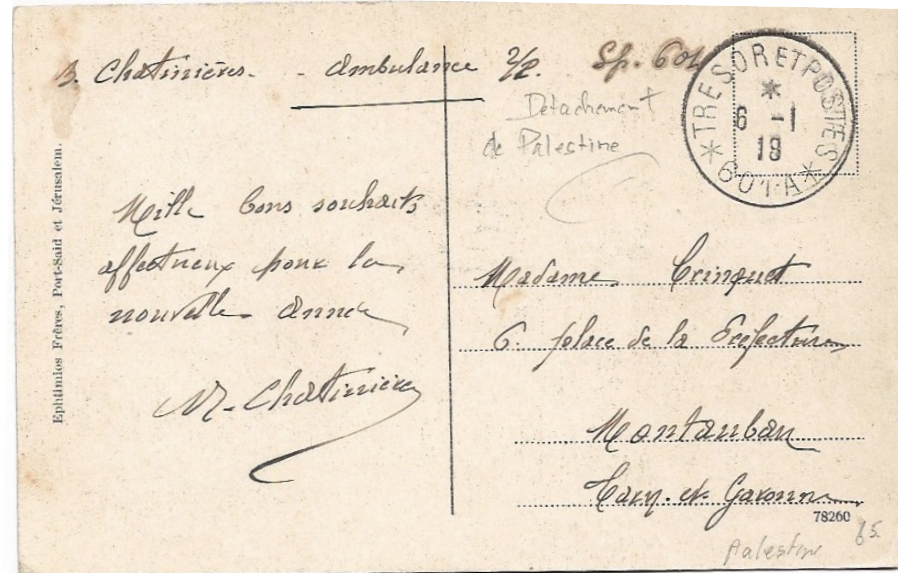 Chatinières. - Ambulance 2/2. Sp. 601
Détachement
de Palestine
*TRESOR ET POSTES*
*
6 -1
19
601.A
Ephtimios Frères, Port-Said et Jérusalem.
Mille bons souhaits
affectueux pour la
nouvelle année
M. Chatinières
Madame Crinquet
6. place de la Préfecture
Montauban
Tarn-et-Garonne
78260
Palestine
85